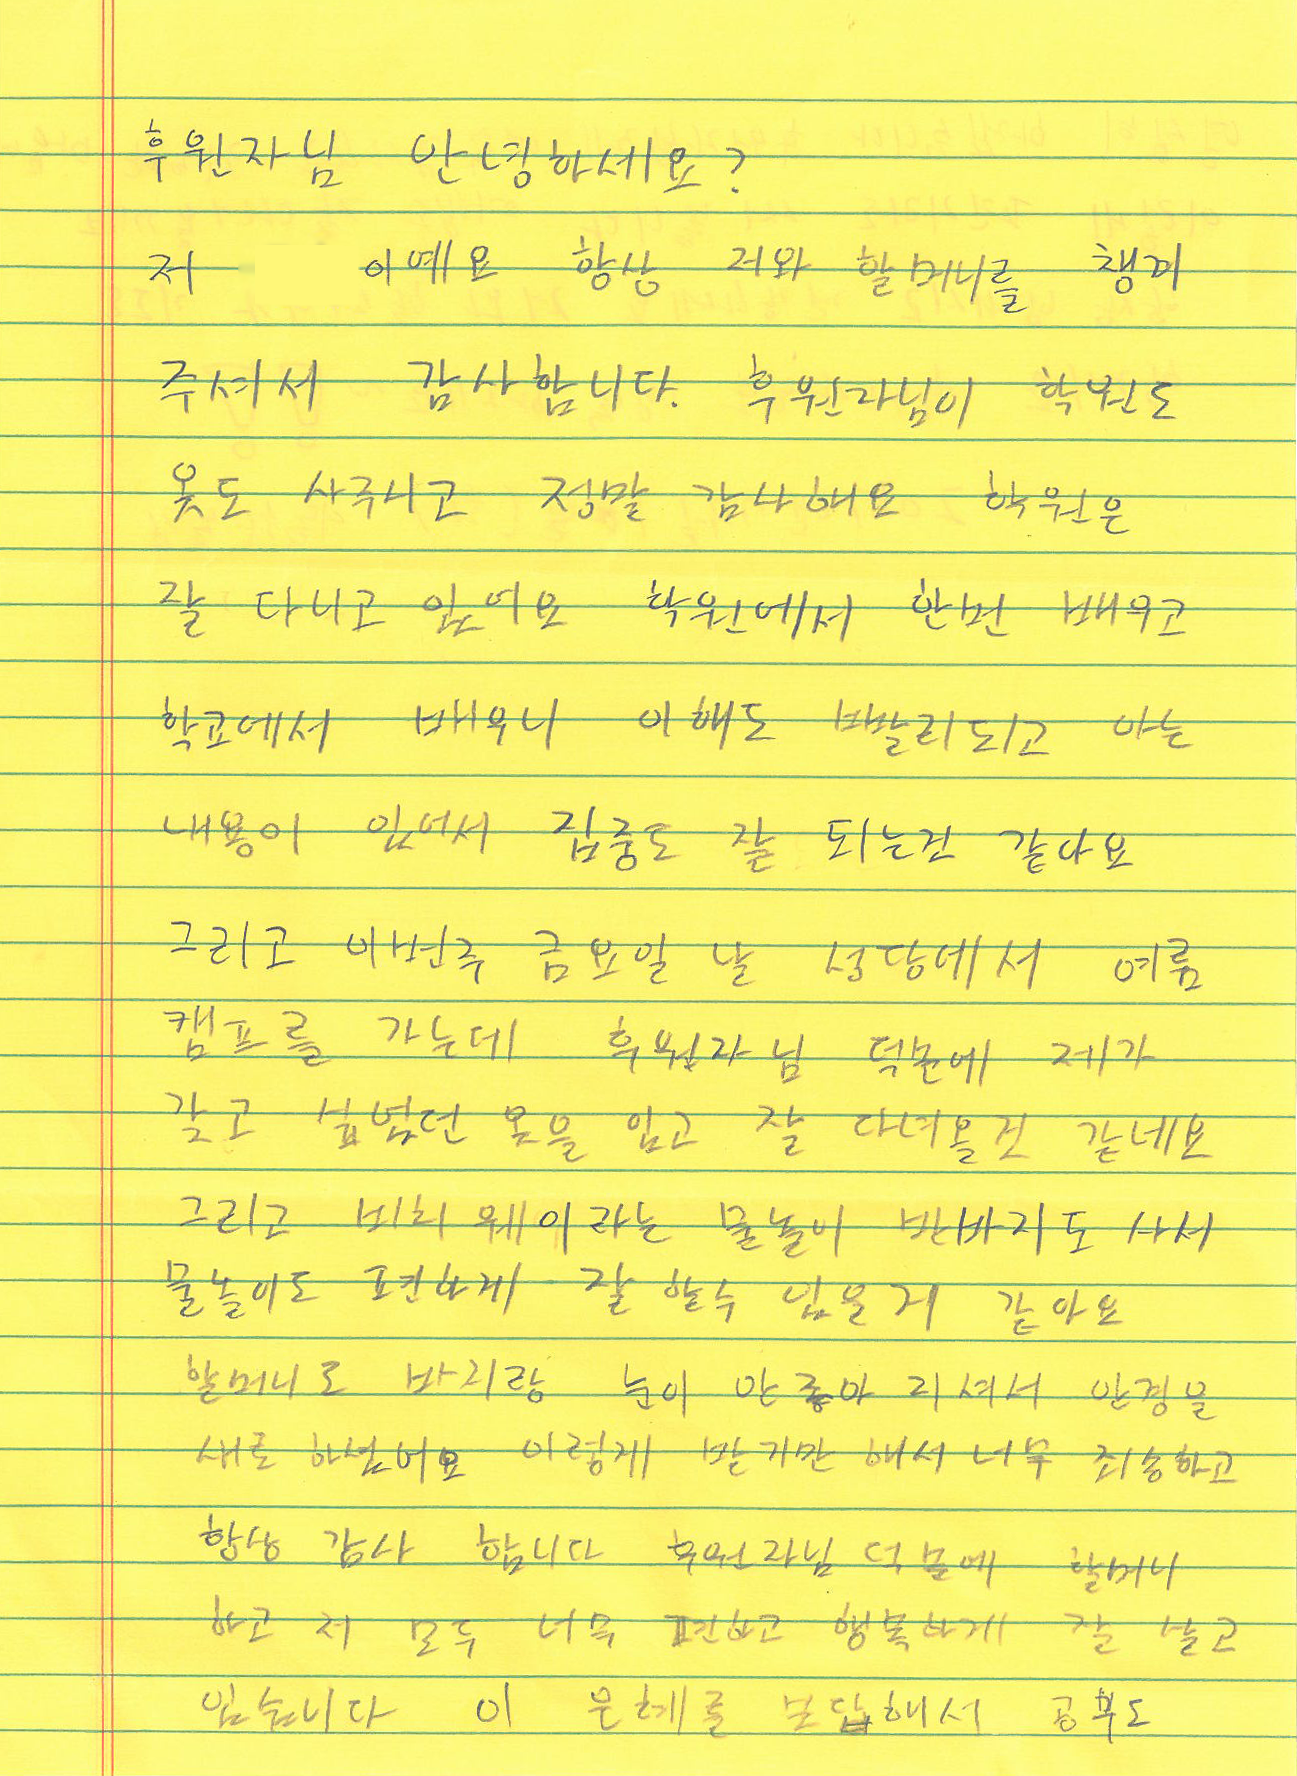 후원자님 안녕하세요?
저 이예요 항상 저와 할머니를 챙겨
주셔서 감사합니다. 후원자님이 학원도
옷도 사주시고 정말 감사해요 학원은
잘 다니고 있어요 학원에서 한번 배우고
학교에서 배우니 이해도 빨리되고 아는
내용이 있어서 집중도 잘 되는것 같아요
그리고 이번주 금요일 날 성당에서 여름
캠프를 가는데 후원자님 덕분에 제가
갖고 싶었던 옷을 입고 잘 다녀올것 같네요
그리고 비치웨이라는 물놀이 반바지도 사서
물놀이도 편하게 잘 할수 있을거 같아요
할머니도 바지랑 눈이 안좋아 지셔서 안경을
새로 하셨어요 이렇게 받기만 해서 너무 죄송하고
항상 감사 합니다 후원자님 덕분에 할머니
하고 저 모두 너무 편하고 행복하게 잘 살고
있습니다 이 은혜를 보답해서 공부도